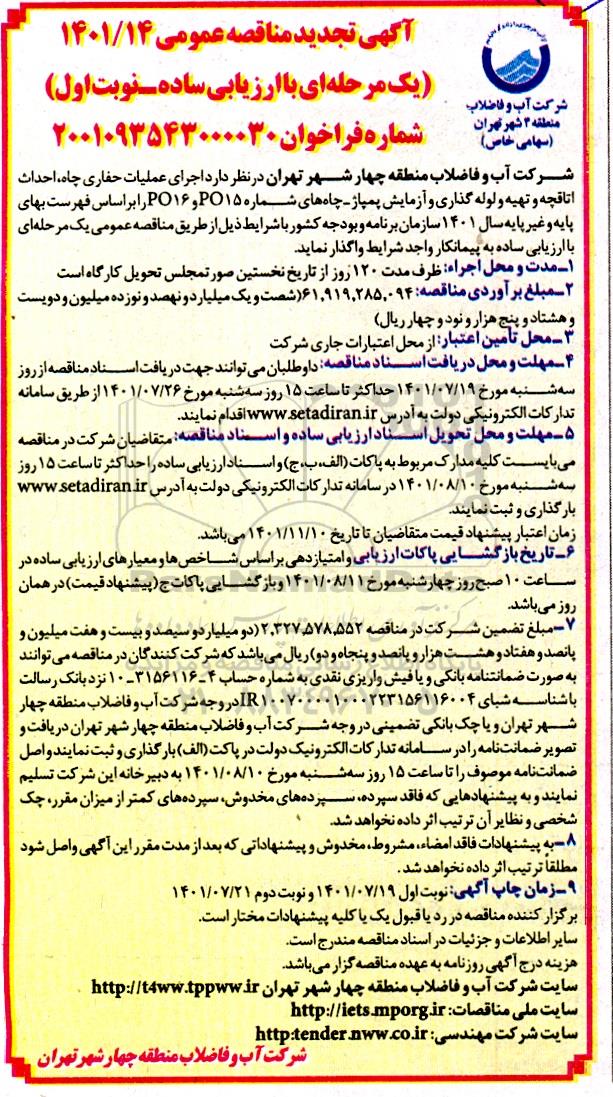 آگهی تجدید مناقصه عمومی ۱۴۰۱/۱۴
(یک مرحله‌ای با ارزیابی ساده ـ نوبت اول)
شماره فراخوان ۲۰۰۱۰۹۳۵۴۳۰۰۰۰۳۰
شرکت آب و فاضلاب
منطقه ۴ شهر تهران
(سهامی خاص)
شرکت آب و فاضلاب منطقه چهار شهر تهران در نظر دارد اجرای عملیات حفاری چاه، احداث
اتاقچه و تهیه و لوله گذاری و آزمایش پمپاژ ـ چاه‌های شماره PO15 و PO16 را بر اساس فهرست بهای
پایه و غیر پایه سال ۱۴۰۱ سازمان برنامه و بودجه کشور با شرایط ذیل از طریق مناقصه عمومی یک مرحله‌ای
با ارزیابی ساده به پیمانکار واجد شرایط واگذار نماید.
۱ـ مدت و محل اجراء: ظرف مدت ۱۲۰ روز از تاریخ نخستین صورتمجلس تحویل کارگاه است
۲ـ مبلغ برآوردی مناقصه: ۶۱,۹۱۹,۲۸۵,۰۹۴ (شصت و یک میلیارد و نهصد و نوزده میلیون و دویست
و هشتاد و پنج هزار و نود و چهار ریال)
۳ـ محل تأمین اعتبار: از محل اعتبارات جاری شرکت
۴ـ مهلت و محل دریافت اسناد مناقصه: داوطلبان می‌توانند جهت دریافت اسناد مناقصه از روز
سه‌شنبه مورخ ۱۴۰۱/۰۷/۱۹ حداکثر تا ساعت ۱۵ روز سه‌شنبه مورخ ۱۴۰۱/۰۷/۲۶ از طریق سامانه
تدارکات الکترونیکی دولت به آدرس www.setadiran.ir اقدام نمایند.
۵ـ مهلت و محل تحویل اسناد ارزیابی ساده و اسناد مناقصه: متقاضیان شرکت در مناقصه
می‌بایست کلیه مدارک مربوط به پاکات (الف، ب، ج) و اسناد ارزیابی ساده را حداکثر تا ساعت ۱۵ روز
سه‌شنبه مورخ ۱۴۰۱/۰۸/۱۰ در سامانه تدارکات الکترونیکی دولت به آدرس www.setadiran.ir
بارگذاری و ثبت نمایند.
زمان اعتبار پیشنهاد قیمت متقاضیان تا تاریخ ۱۴۰۱/۱۱/۱۰ می‌باشد.
۶ـ تاریخ بازگشایی پاکات ارزیابی و امتیازدهی بر اساس شاخص‌ها و معیارهای ارزیابی ساده در
ساعت ۱۰ صبح روز چهارشنبه مورخ ۱۴۰۱/۰۸/۱۱ و بازگشایی پاکات ج (پیشنهاد قیمت) در همان
روز می‌باشد.
۷ـ مبلغ تضمین شرکت در مناقصه ۲,۳۲۷,۵۷۸,۵۵۲ (دو میلیارد و سیصد و بیست و هفت میلیون و
پانصد و هفتاد و هشت هزار و پانصد و پنجاه و دو) ریال می‌باشد که شرکت کنندگان در مناقصه می‌توانند
به صورت ضمانتنامه بانکی و یا فیش واریزی نقدی به شماره حساب ۴ـ۳۱۵۶۱۱۶ـ۱۰ نزد بانک رسالت
با شناسه شبای IR۱۰۰۷۰۰۰۰۱۰۰۰۲۲۳۱۵۶۱۱۶۰۰۴ در وجه شرکت آب و فاضلاب منطقه چهار
شهر تهران و یا چک بانکی تضمینی در وجه شرکت آب و فاضلاب منطقه چهار شهر تهران دریافت و
تصویر ضمانت‌نامه را در سامانه تدارکات الکترونیک دولت در پاکت (الف) بارگذاری و ثبت نمایند و اصل
ضمانت‌نامه موصوف را تا ساعت ۱۵ روز سه‌شنبه مورخ ۱۴۰۱/۰۸/۱۰ به دبیرخانه این شرکت تسلیم
نمایند و به پیشنهادهایی که فاقد سپرده، سپرده‌های مخدوش، سپرده‌های کمتر از میزان مقرر، چک
شخصی و نظایر آن ترتیب اثر داده نخواهد شد.
۸ـ به پیشنهادات فاقد امضاء، مشروط، مخدوش و پیشنهاداتی که بعد از مدت مقرر این آگهی واصل شود
مطلقاً ترتیب اثر داده نخواهد شد.
۹ـ زمان چاپ آگهی: نوبت اول ۱۴۰۱/۰۷/۱۹ و نوبت دوم ۱۴۰۱/۰۷/۲۱
برگزار کننده مناقصه در رد یا قبول یک یا کلیه پیشنهادات مختار است.
سایر اطلاعات و جزئیات در اسناد مناقصه مندرج است.
هزینه درج آگهی روزنامه به عهده مناقصه گزار می‌باشد.
سایت شرکت آب و فاضلاب منطقه چهار شهر تهران http://t4ww.tppww.ir
سایت ملی مناقصات: http://iets.mporg.ir
سایت شرکت مهندسی: http:tender.nww.co.ir
شرکت آب و فاضلاب منطقه چهار شهر تهران